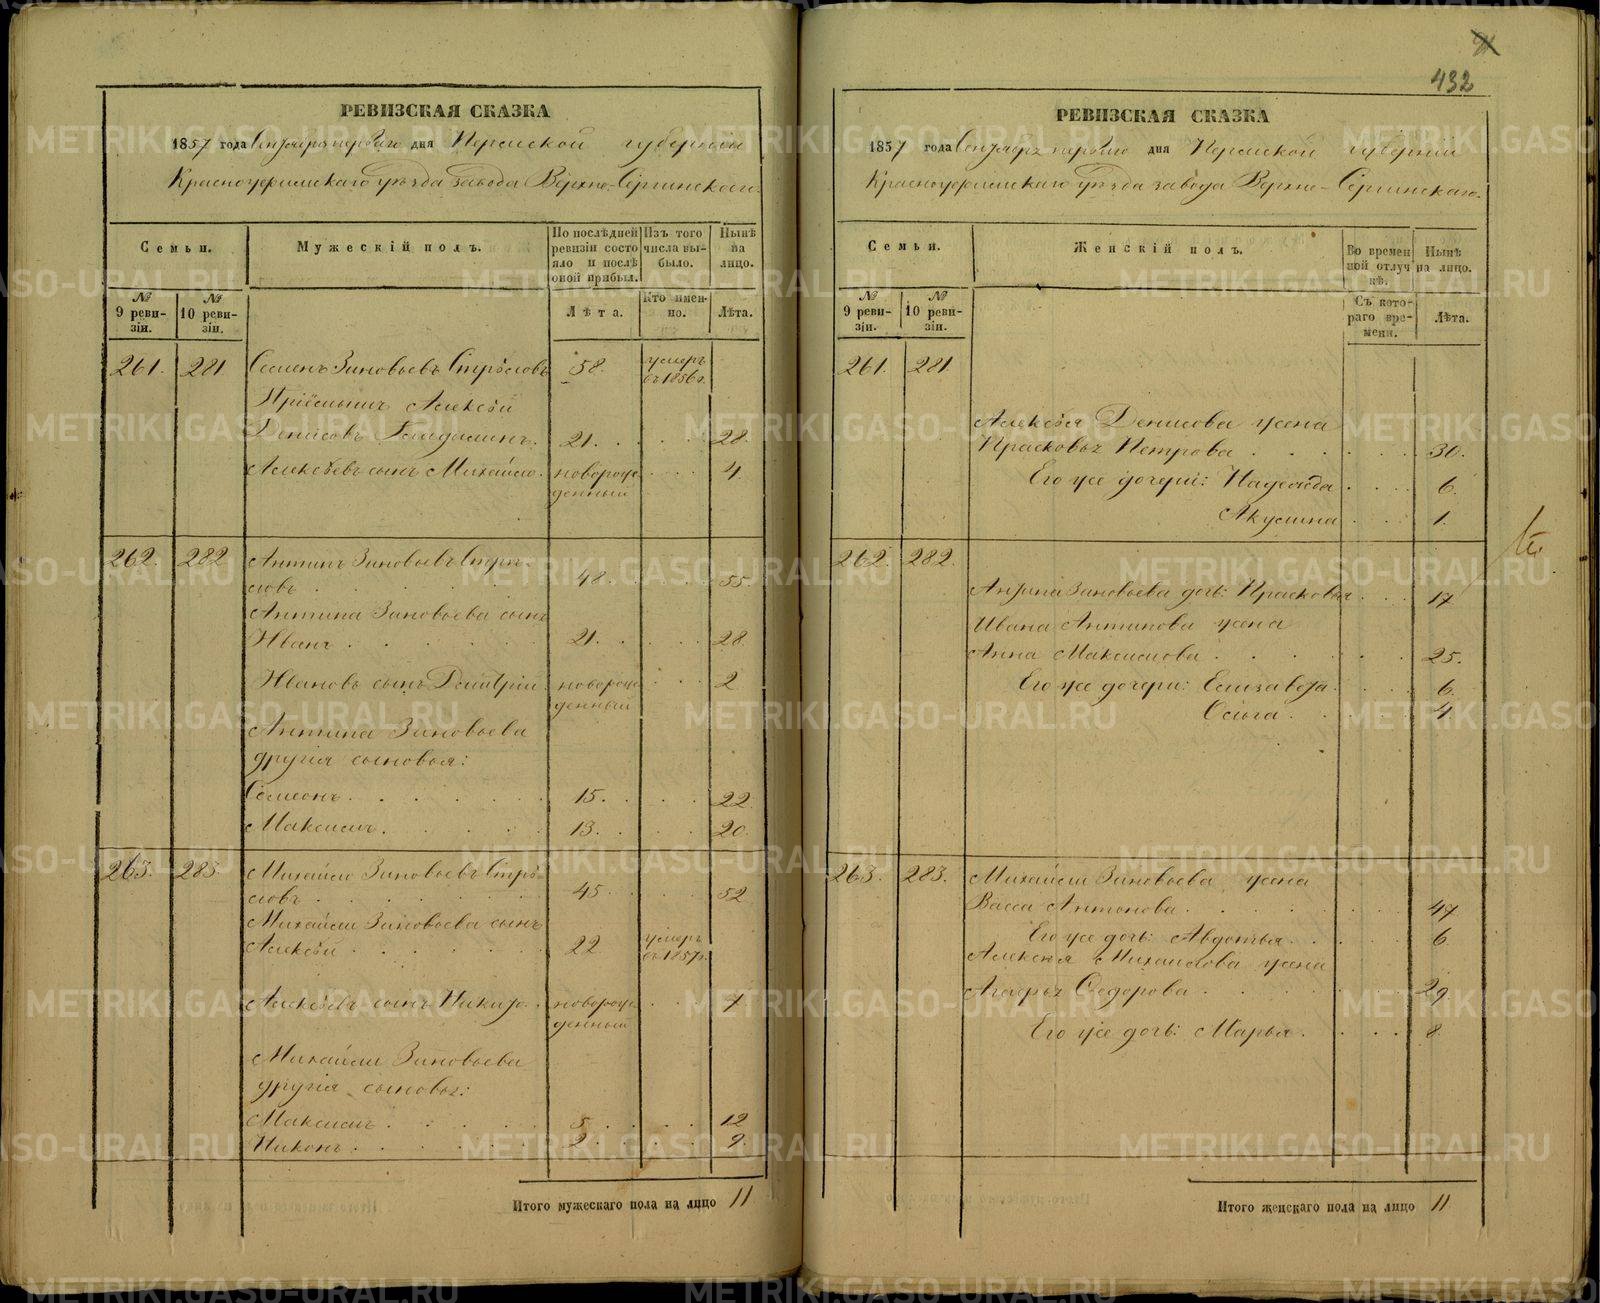 432
РЕВИЗСКАЯ СКАЗКА
1857 года Сентября перваго дня Пермской губернии
Красноуфимскаго уѣзда завода Верхне-Сергинскаго.
Семьи.
Мужескій полъ.
По послѣдней ревизіи состояло и послѣ оной прибыл.
Изъ того числа выбыло.
Нынѣ на лицо.
№ 9 ревизіи.
№ 10 ревизіи.
Лѣта.
Кто именно.
Лѣта.
261. 281 Семенъ Зиновьевъ 58. умеръ въ 1856 г.
Пріемышъ Алексѣй
Денисовъ 21. 28.
Алексѣевъ сынъ Михайло. новорожденный 4.
262. 282 Антипъ Зиновьевъ
48. 55.
Антипа Зиновьева сынъ
Иванъ 21. 28.
Ивановъ сынъ Дмитрій. новорожденный 2
Антипа Зиновьева
другія сыновья:
Семенъ. 15. 22
Максимъ. 13. 20.
263. 283. Михайло Зиновьевъ
45. 52
Михайлы Зиновьева сынъ
Алексѣй 22 умеръ въ 1857 г.
Алексѣевъ сынъ Никита. новорожденный 7.
Михайлы Зиновьева
другія сыновья:
Максимъ 5. 12
Никонъ. 2. 9.
Итого мужескаго пола на лицо 11
РЕВИЗСКАЯ СКАЗКА
1857 года Сентября перваго дня Пермской губерніи
Красноуфимскаго уѣзда завода Верхне-Сергинскаго.
Семьи.
Женскій полъ.
Во временной отлучкѣ.
Нынѣ на лицо.
№ 9 ревизіи.
№ 10 ревизіи.
Съ котораго времени.
Лѣта.
261. 281.
Алексѣя Денисова жена
Прасковья Петрова 30.
Его же дочери: Надежда 6.
Акулина 1.
262. 282.
Антипа Зиновьева дочь: Прасковья 17
Ивана Антипова жена
Анна Максимова 25.
Его же дочери: Елизавета. 6.
Ольга. 4
263. 283. Михайлы Зиновьева жена
Васса Антонова. 47
Его же дочь: Авдотья. 6
Алексѣя Михайлова жена
Агафья Федорова 29.
Его же дочь: Марья. 8.
Итого женскаго пола на лицо 11
METRIKI.GASO-URAL.RU